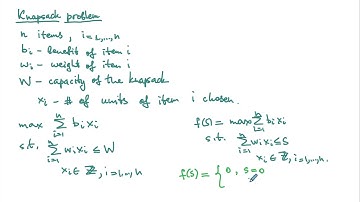 Knapsack problem
n items, i=1,...,n
bᵢ - benefit of item i
wᵢ - weight of item i
W - capacity of the knapsack
xᵢ - # of units of item i chosen.
max ∑ᵢ₌₁ⁿ bᵢxᵢ
s.t. ∑ᵢ₌₁ⁿ wᵢxᵢ ≤ W
xᵢ ∈ ℤ, i=1,...,n
f(s) = max ∑ᵢ₌₁ⁿ bᵢxᵢ
s.t. ∑ᵢ₌₁ⁿ wᵢxᵢ ≤ s
xᵢ ∈ ℤ, i=1,...,n.
f(s) = { 0, s=0